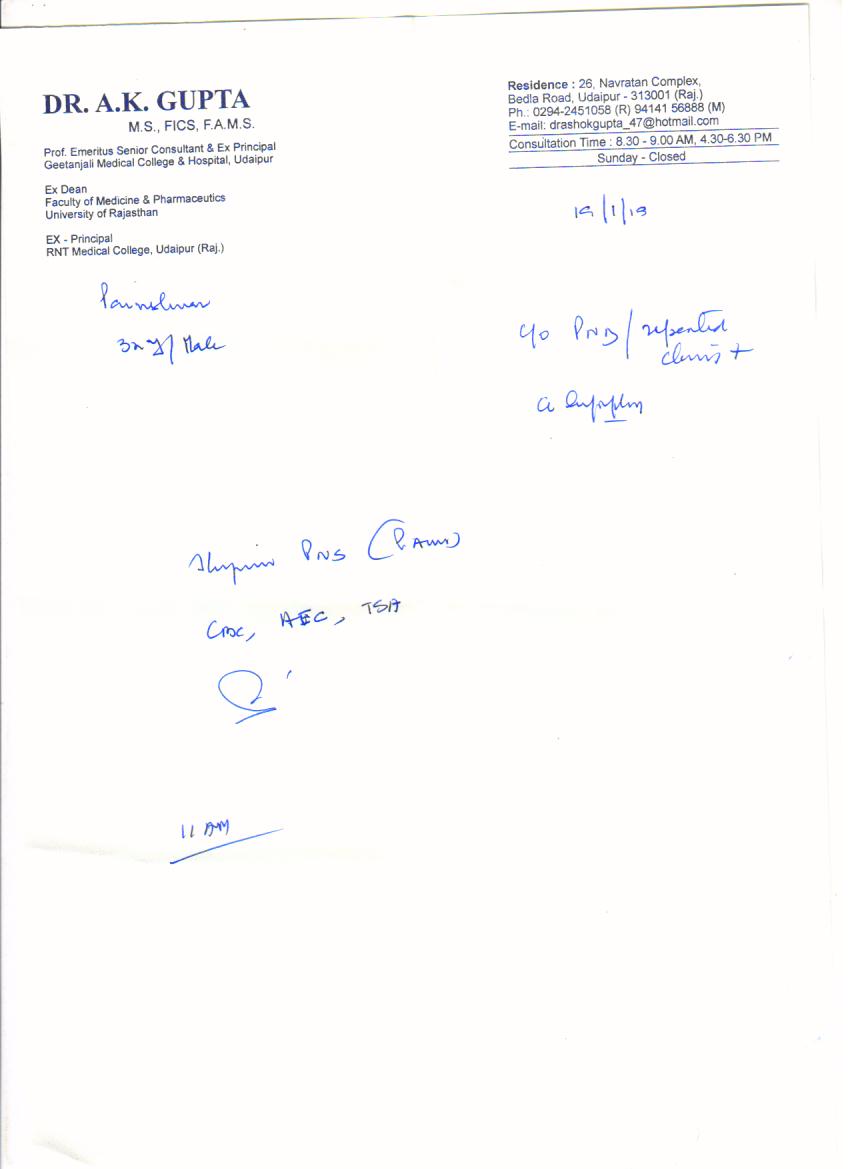 DR. A.K. GUPTA
M.S., FICS, F.A.M.S.
Prof. Emeritus Senior Consultant & Ex Principal
Geetanjali Medical College & Hospital, Udaipur
Ex Dean
Faculty of Medicine & Pharmaceutics
University of Rajasthan
EX - Principal
RNT Medical College, Udaipur (Raj.)
Residence : 26, Navratan Complex,
Bedla Road, Udaipur - 313001 (Raj.)
Ph.: 0294-2451058 (R) 94141 56888 (M)
E-mail: drashokgupta_47@hotmail.com
Consultation Time : 8.30 - 9.00 AM, 4.30-6.30 PM
Sunday - Closed
19/1/19
Male
c/o PND / repeated
+
PNS
CBC, AEC, TSH
11 AM